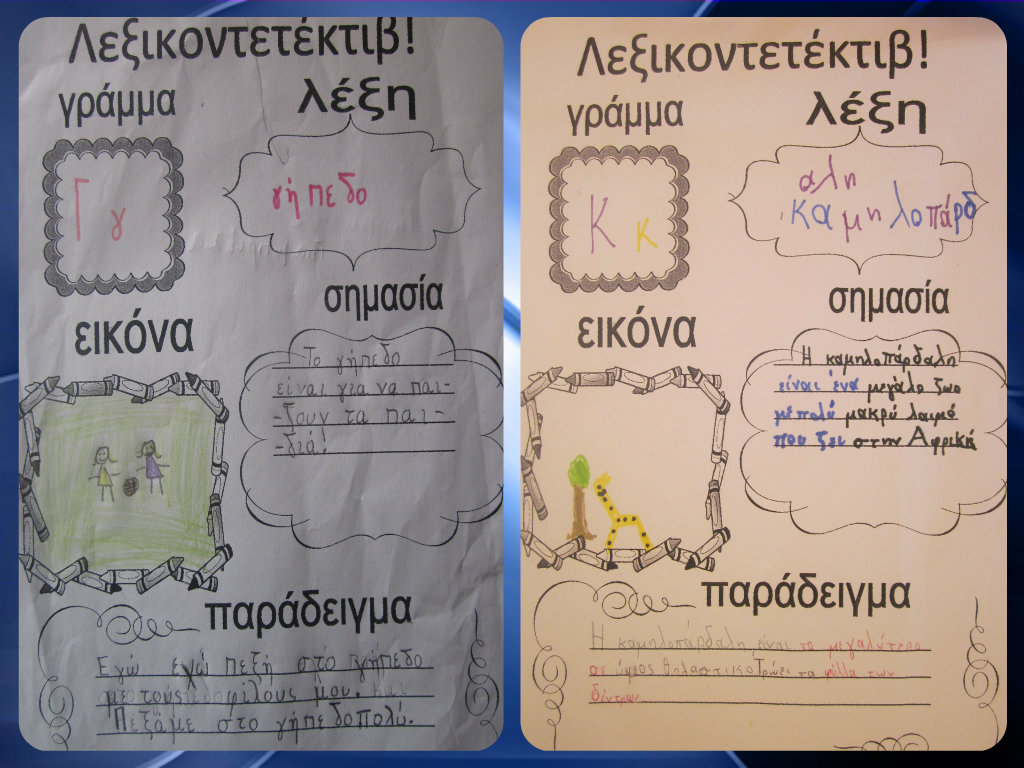 Λεξικοντετέκτιβ!
γράμμα
λέξη
Γ γ
γήπεδο
εικόνα
σημασία
Το γήπεδο
είναι για να παι-
-ζουν τα παι-
-διά!
παράδειγμα
Εγώ εχώ πεξή στο γήπεδο
με τους φίλους μου. και
Πεξάμε στο γήπεδο πολύ.
Λεξικοντετέκτιβ!
γράμμα
λέξη
Κ κ
αλη
καμηλοπάρδ
εικόνα
σημασία
Η καμηλοπάρδαλη
είναι ένα μεγάλο ζωο
με πολύ μακρύ λαιμό
που ζει στην Αφρική
παράδειγμα
Η καμηλοπάρδαλη είναι το μεγαλύτερο
σε ύψος θηλαστικο Τρώει τα φύλλα των
δέντρων